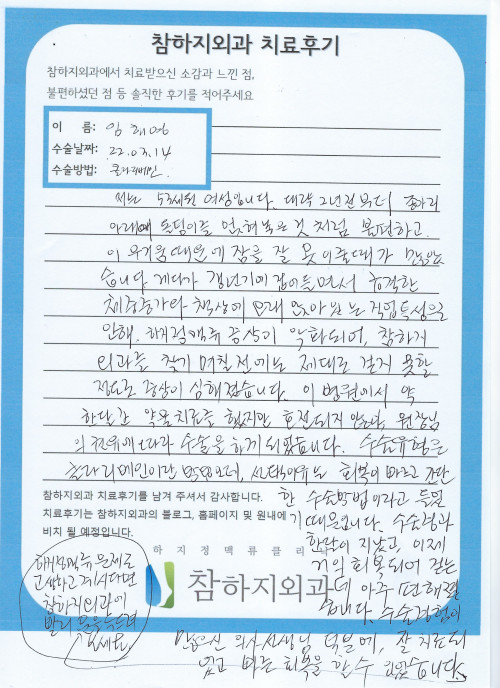 참하지외과 치료후기
참하지외과에서 치료받으신 소감과 느낀 점,
불편하셨던 점 등 솔직한 후기를 적어주세요
이 름: 임
수술날짜: 22.03.14
수술방법: 클라리베인.
저는 53세된 여성입니다. 대략 2년전부터 종아리
아래에 돌덩이를 얹혀놓은 것 처럼 불편하고.
이 무거움 때문에 잠을 잘 못 이룰때가 많았
습니다. 게다가 갱년기에 접어들면서 급격한
체중증가와 책상에 오래 앉아 있는 직업특성으로
인해. 하지정맥류 증상이 악화되어, 참하지
외과를 찾기 며칠 전에는 제대로 걷지 못할
정도로 증상이 심해졌습니다. 이 병원에서 약
한달간 약물치료를 했지만 호전되지 않아, 원장님
의 권유에 따라 수술을 하게 되었습니다. 수술유형은
클라리베인이란 방법인데, 선택이유는 회복이 빠르고 간단
한 수술방법이라고 들었
기 때문입니다. 수술경과
한달이 지났고, 이제
거의 회복되어 걷는
데 아주 편해졌
습니다. 수술경험이
많으신 의사선생님 덕분에, 잘 치료되
었고 빠른 회복을 할 수 있었습니다.
참하지외과 치료후기를 남겨 주셔서 감사합니다.
치료후기는 참하지외과의 블로그, 홈페이지 및 원내에
비치 될 예정입니다.
하지정맥류클리닉
참하지외과
하지정맥류 문제로
고생하고 계시다면
참하지외과에
빨리 문을 두드려
보세요.